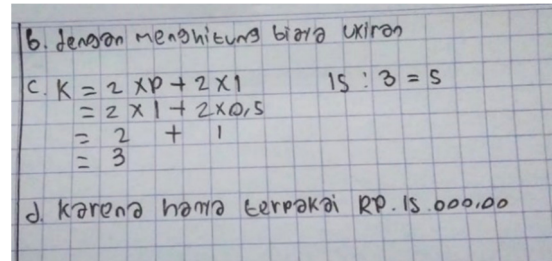 B. dengan menghitung biaya ukiran
C. K = 2 x p + 2 x l 15 : 3 = 5
= 2 x 1 + 2 x 0,5
= 2 + 1
= 3
d. karena hanya terpakai RP. 15.000,00